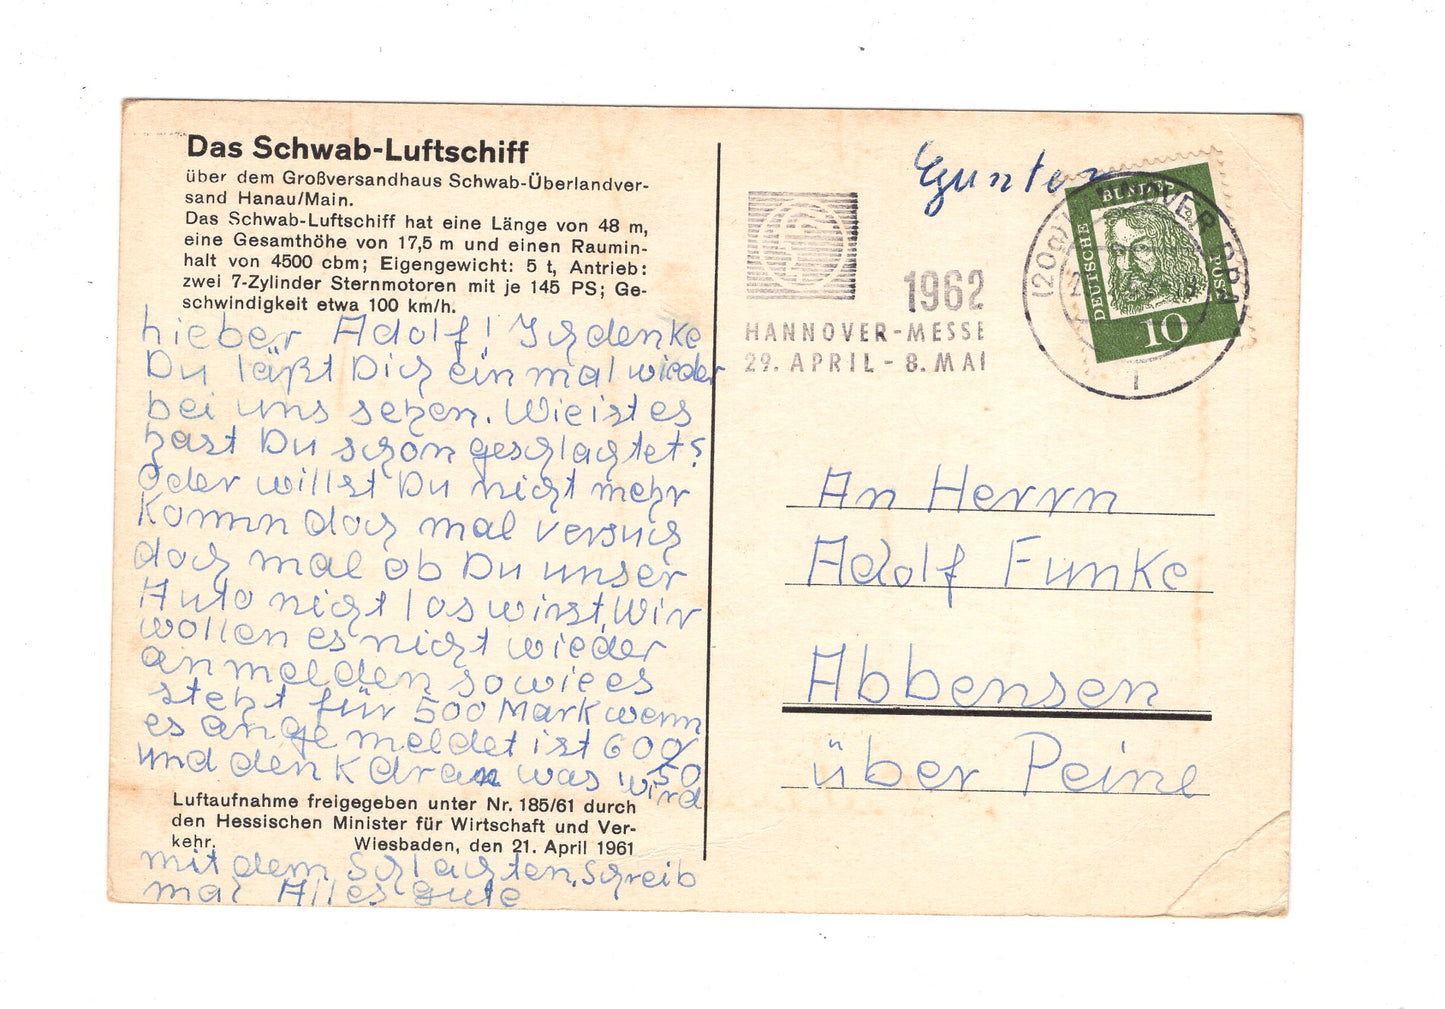 Das Schwab-Luftschiff
über dem Großversandhaus Schwab-Überlandver-
sand Hanau/Main.
Das Schwab-Luftschiff hat eine Länge von 48 m,
eine Gesamthöhe von 17,5 m und einen Raumin-
halt von 4500 cbm; Eigengewicht: 5 t, Antrieb:
zwei 7-Zylinder Sternmotoren mit je 145 PS; Ge-
schwindigkeit etwa 100 km/h.
Lieber Adolf! Ich denke
Du läßt Dich einmal wieder
bei uns sehen. Wie ist es
hast Du schon geschlachtet?
Oder willst Du nicht mehr
Komm doch mal versuch
doch mal ob Du unser
Auto nicht los wirst, Wir
wollen es nicht wieder
anmelden so wie es
steht für 500 Mark wenn
es angemeldet ist 600/50
und denk daran was wird
Luftaufnahme freigegeben unter Nr. 185/61 durch
den Hessischen Minister für Wirtschaft und Ver-
kehr. Wiesbaden, den 21. April 1961
mit dem Schlachten. Schreib
mal Alles gute
Gunter
1962
HANNOVER-MESSE
29. APRIL - 8. MAI
(20a) HANNOVER
DEUTSCHE BUNDESPOST
10
An Herrn
Adolf Funke
Abbensen
über Peine